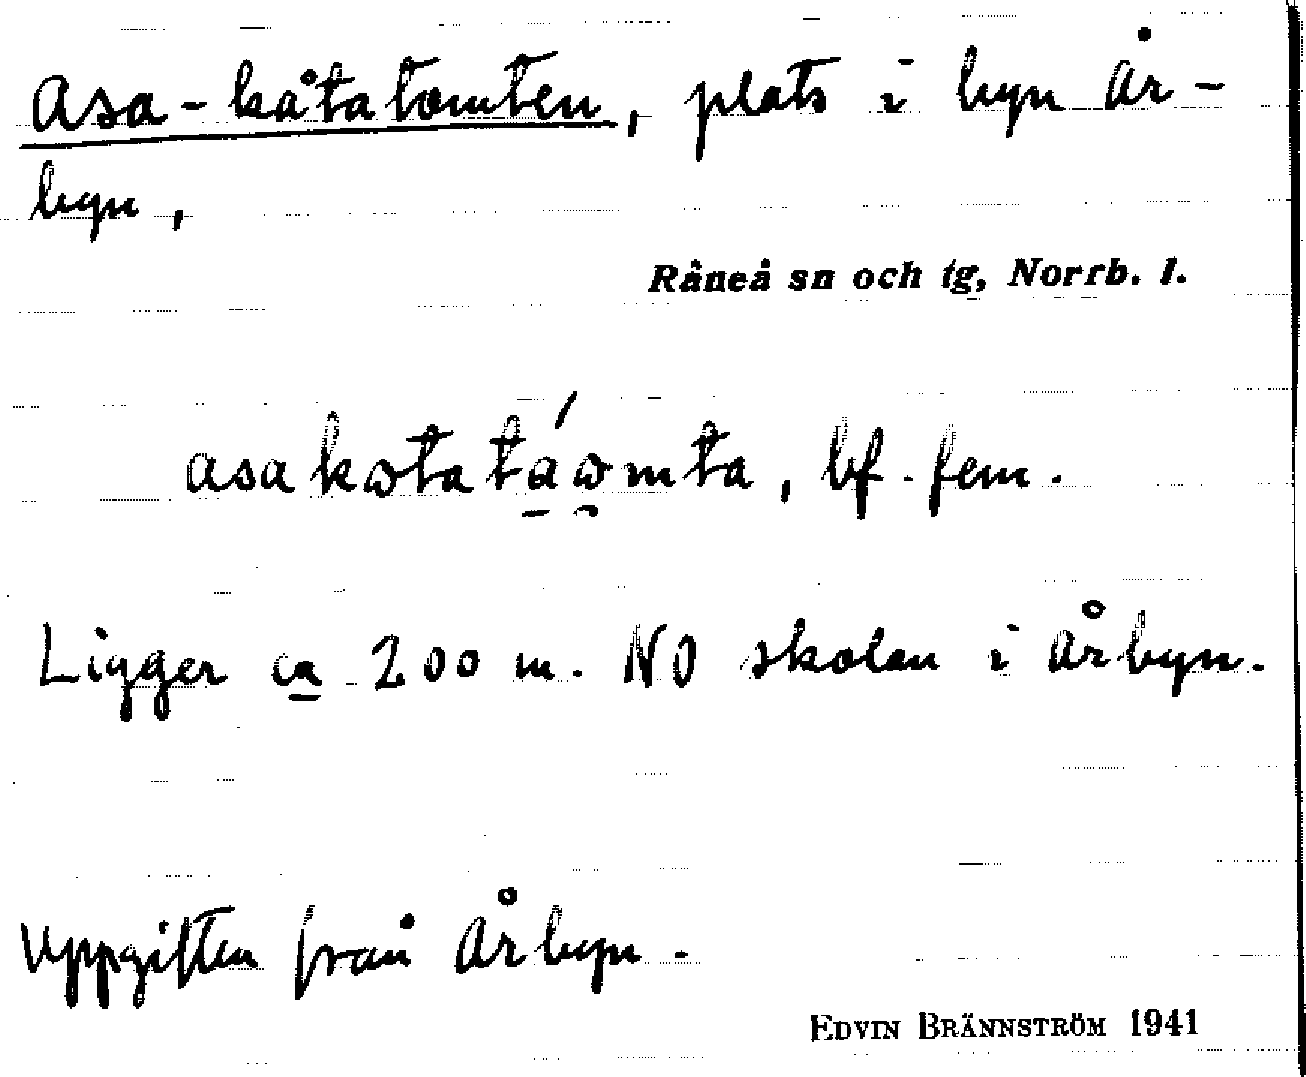 Asa-kåtatomten, plats i byn År-
byn,
Råneå sn och tg, Norrb. l.
asakωtatáωmta, bf. fem.
Ligger ca 200 m. NO skolan i Årbyn.
Uppgiften från Årbyn.
EDVIN BRÄNNSTRÖM 1941